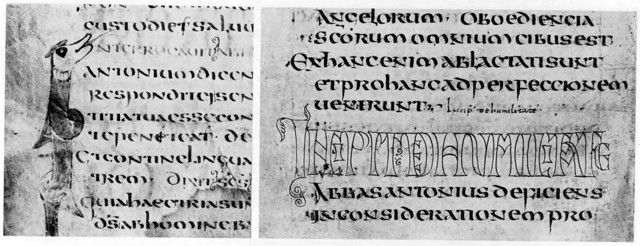 custodiet salu
antonium dicen
Respondit ei sen
tuaesse con
te peniteat. de
et contine lingua
trem.
ds abhomina
Angelorum. oboediencia
scorum omnium cibus est
Ex hanc enim ablactati sunt
et pro hanc ad perfeccionem
uenerunt. Incip de humilitate
INCIPIT DE HUMILITATE
Abbas antonius deficiens
in considerationem pro